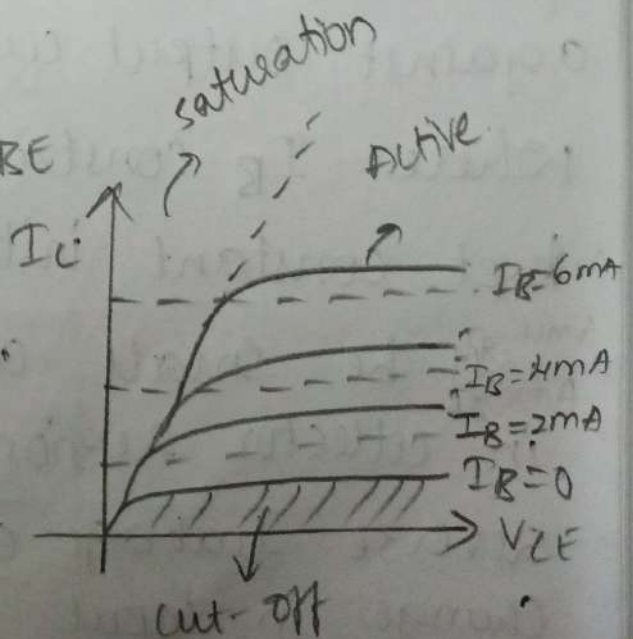 saturation
Active
BE
IC
IB=6mA
IB=4mA
IB=2mA
IB=0
VCE
cut-off